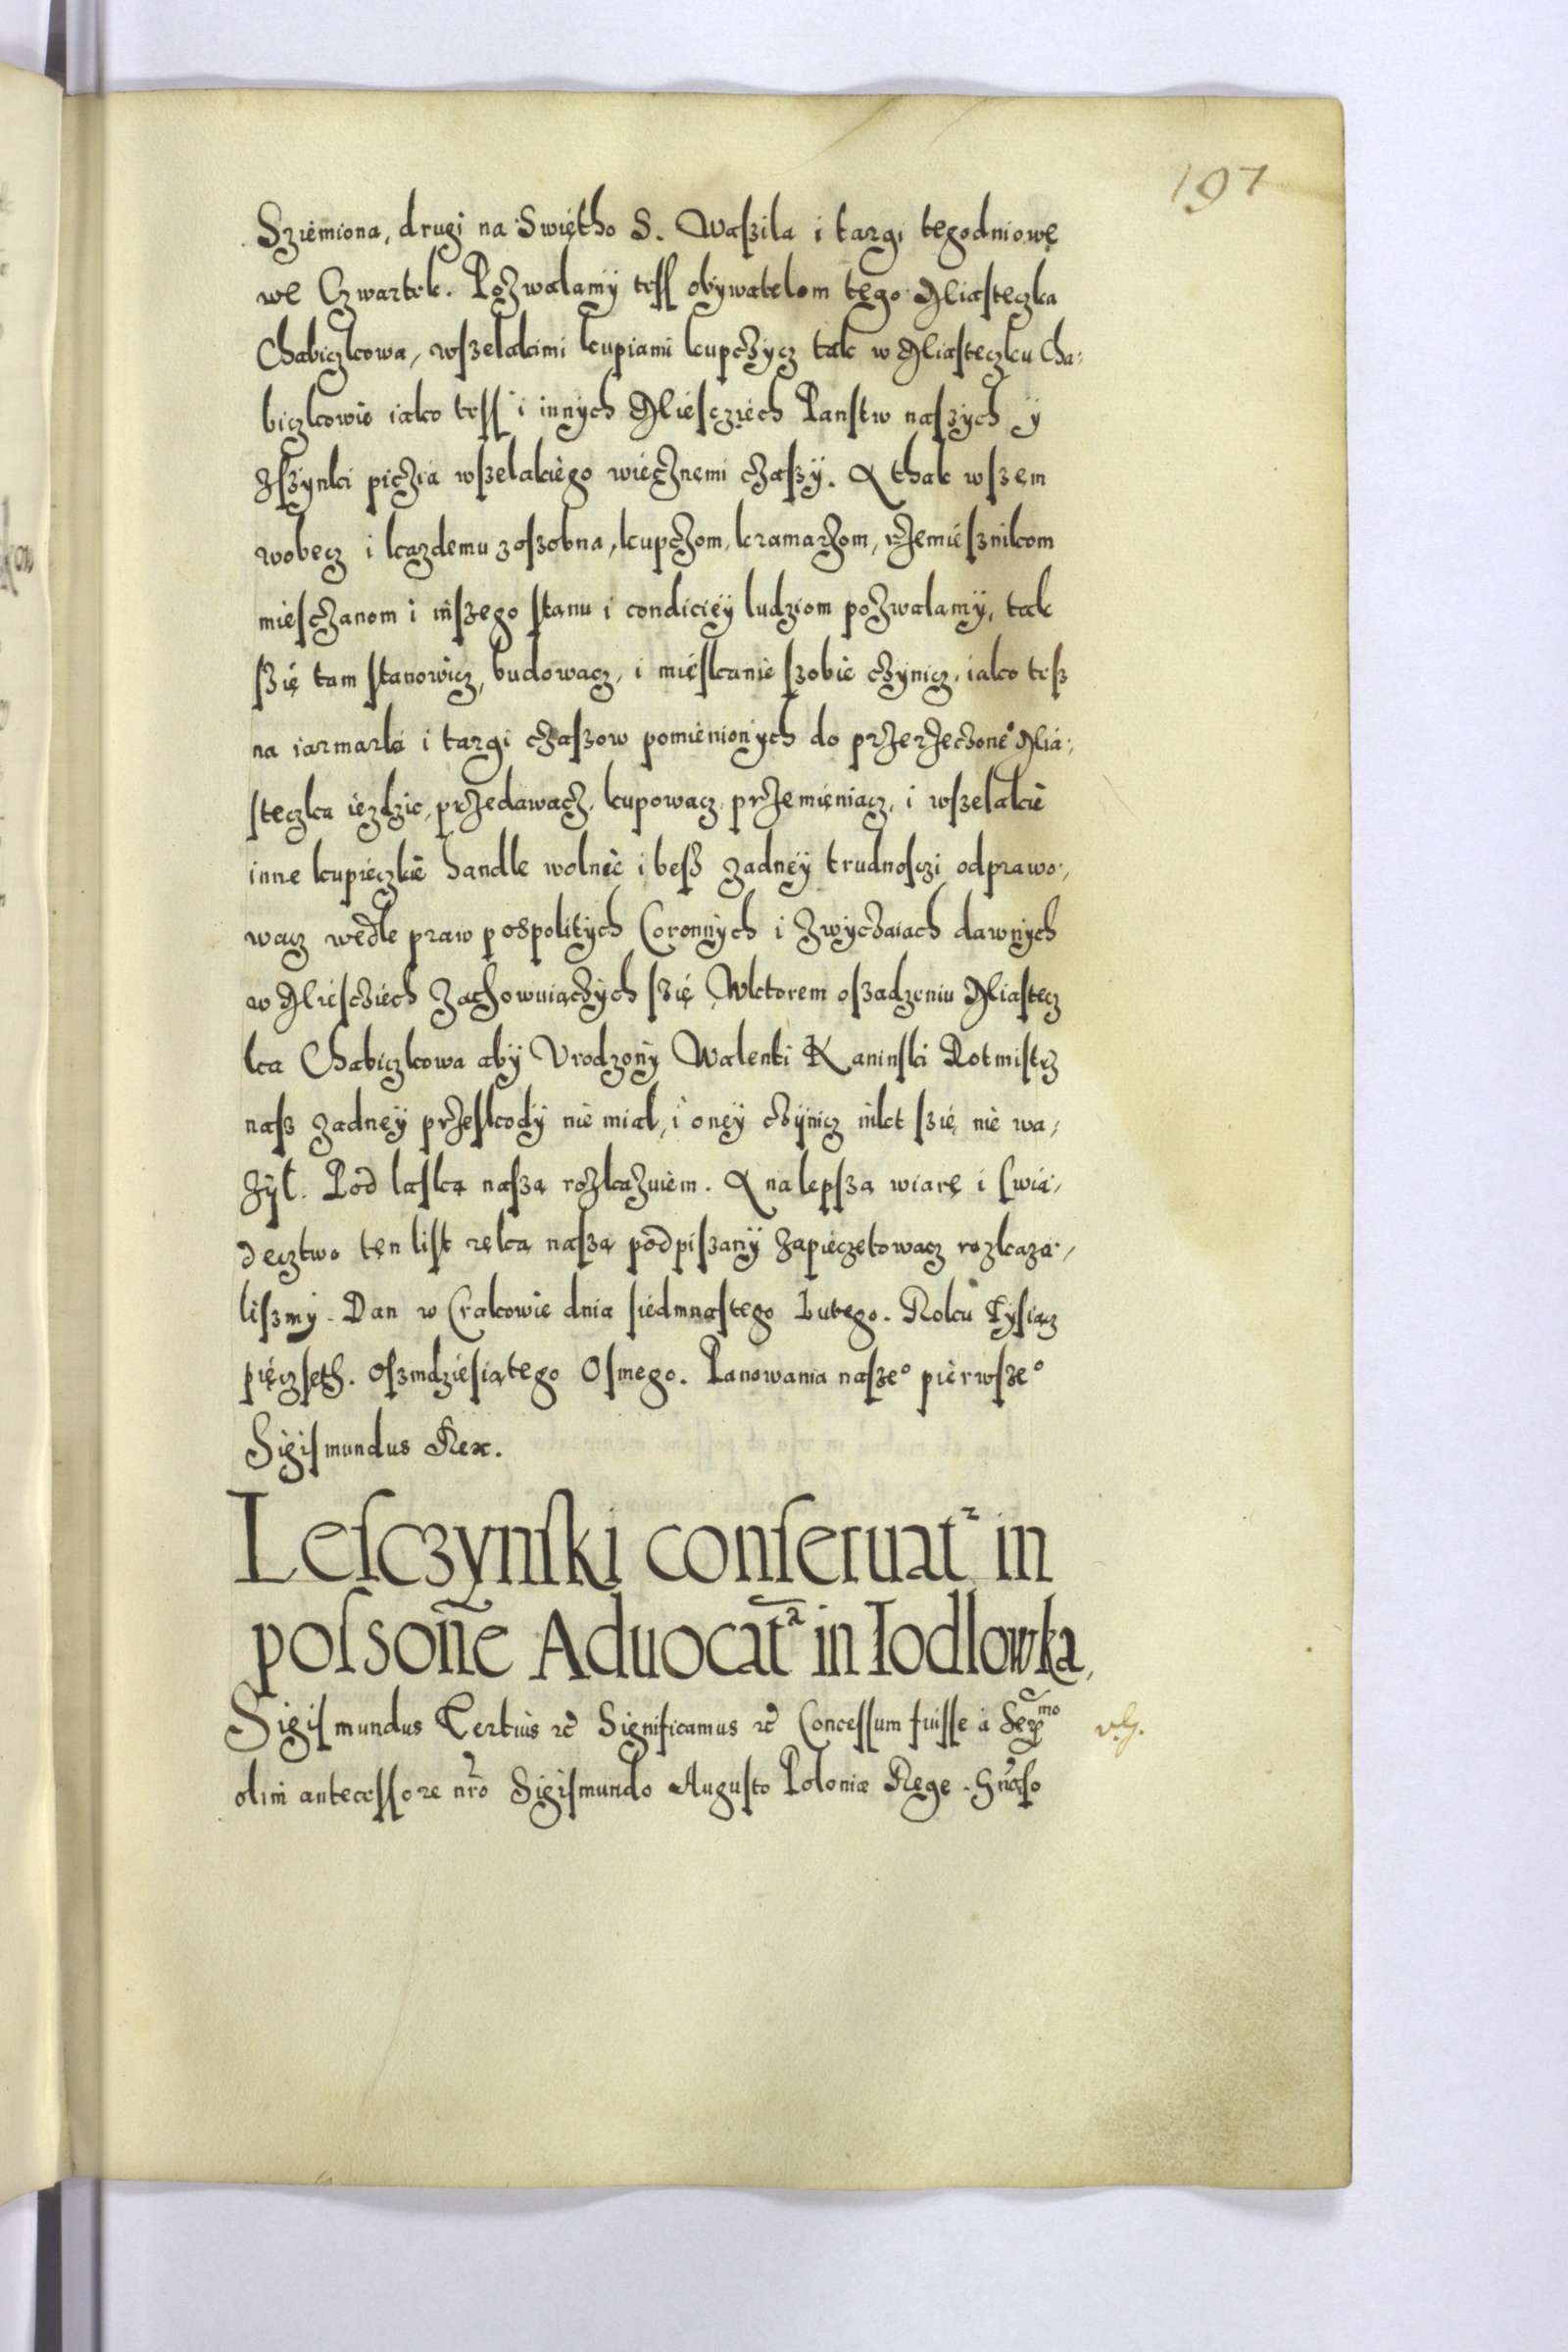 197
Sziemiona, drugi na Swiętho S. Waszila i targi tegodniowę
wę Czwartek. Pozwalamÿ tess obÿwatelom tęgo Miasteczka
Chabiczkowa, wszelakimi kupiami kupczÿcz tak w Miasteczku Cha:
biczkowie iako tess i innÿch Miesczięch Panstw naszÿch ÿ
zszÿnki piczia wszelakiego wiecznemi czaszÿ. A thak wszem
wobęcz i kazdemu zoszobna, kupczom, kramarzom, rzemiesznikom
miesczanom i inszego stanu i condicięÿ ludziom pozwalamÿ, tak
szię tam stanowicz, budowacz, i mięskanie szobie czÿnicz, iako tesz
na iarmarki i targi czaszow pomienionÿch do przerzeczone° Mia:
steczka iezdzic, przedawacz, kupowacz, przemięniacz, i wszelakie
inne kupieczkie handle wolnie i besz zadnęÿ trudnosczi odprawo:
wacz wedle praw pospolitÿch Coronnÿch i zwÿczaiach dawnÿch
w Miesczięch zachowuiączÿch szię Wktorem oszadzeniu Miastecz
ka Chabiczkowa abÿ Urodzonÿ Walenti Kaninski Rotmistz
nasz zadnęÿ przeskodÿ nie miał, i onęÿ czÿnicz nikt szię nie wa:
zÿł. Pod laską naszą rozkazuiem. A na lepszą wiarę i swia:
decztwo tęn list ręką naszą podpiszanÿ zapieczętowacz rozkaza:
liszmÿ. Dan w Crakowie dnia siedmnastego Lutego. Roku Tÿsiącz
pięczseth. oszmdziesiątego Osmego. Panowania nasze° pierwsze°
Sigismundus Rex.
Lesczynski conseruat<sup>r</sup> in
possoñe Aduocat<sup>a</sup> in Iodlowka,
Sigismundus Tertius etc Significamus etc Concessum fuisse à Ser<sup>mo</sup>
olim antecessore nro Sigismundo Augusto Poloniæ Rege. Gnoso